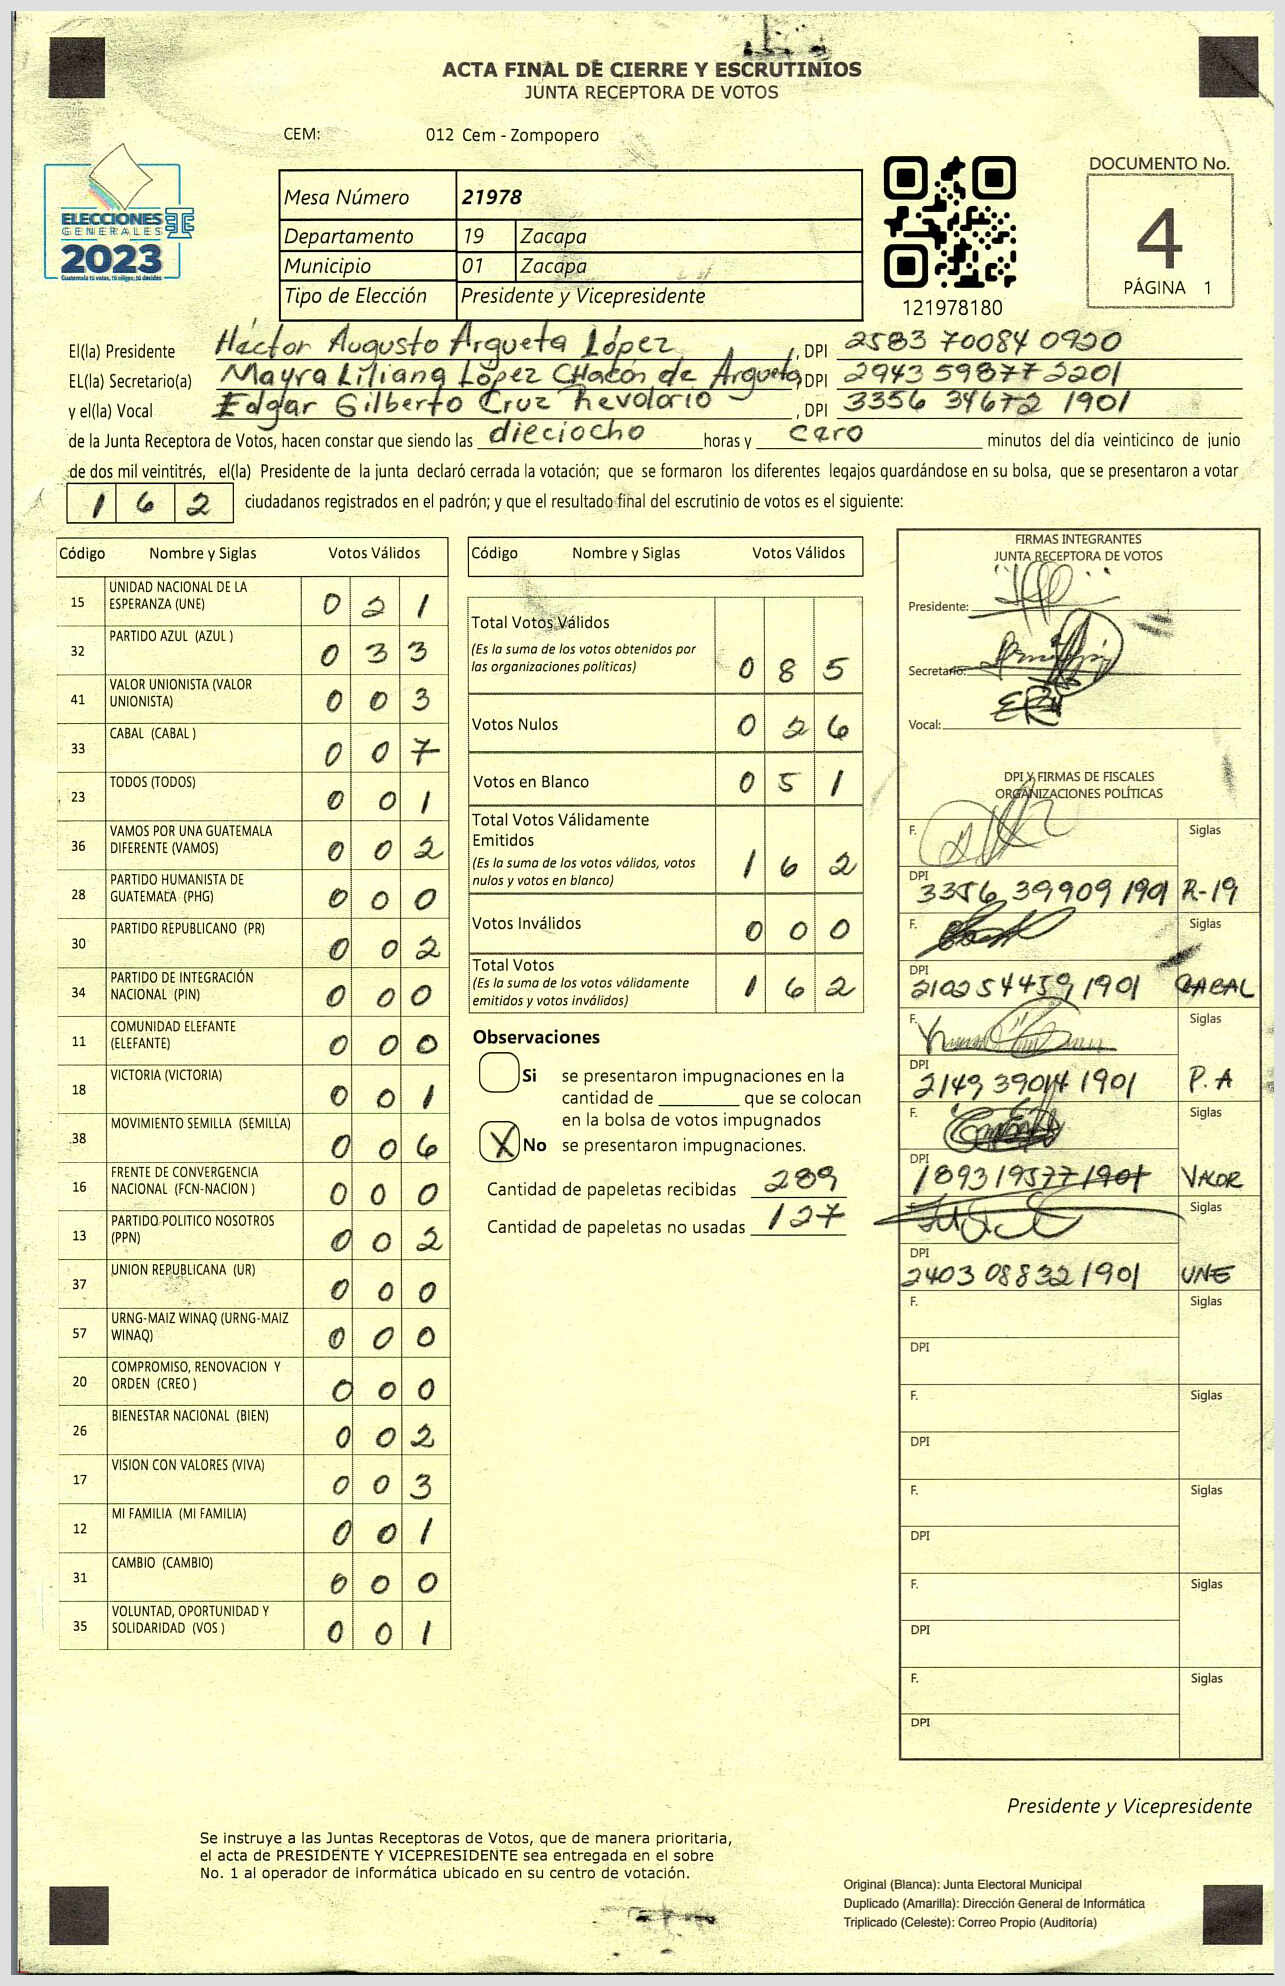 ACTA FINAL DE CIERRE Y ESCRUTINIOS
JUNTA RECEPTORA DE VOTOS
CEM: 012 Cem - Zompopero
ELECCIONES
GENERALES
2023
Guatemala tú votas, tú eliges, tú decides
Mesa Número 21978
Departamento 19 Zacapa
Municipio 01 Zacapa
Tipo de Elección Presidente y Vicepresidente
121978180
DOCUMENTO No.
4
PÁGINA 1
El(la) Presidente Héctor Augusto Argueta López, DPI 2583 70084 0920
EL(la) Secretario(a) Mayra Liliana López CHacón de Argueta, DPI 2943 59877 2201
y el(la) Vocal Edgar Gilberto Cruz Revolorio, DPI 3356 34672 1901
de la Junta Receptora de Votos, hacen constar que siendo las dieciocho horas y cero minutos del día veinticinco de junio
de dos mil veintitrés, el(la) Presidente de la junta declaró cerrada la votación; que se formaron los diferentes legajos guardándose en su bolsa, que se presentaron a votar
162 ciudadanos registrados en el padrón; y que el resultado final del escrutinio de votos es el siguiente:
Código Nombre y Siglas Votos Válidos
15 UNIDAD NACIONAL DE LA ESPERANZA (UNE) 021
32 PARTIDO AZUL (AZUL ) 033
41 VALOR UNIONISTA (VALOR UNIONISTA) 003
33 CABAL (CABAL ) 007
23 TODOS (TODOS) 001
36 VAMOS POR UNA GUATEMALA DIFERENTE (VAMOS) 002
28 PARTIDO HUMANISTA DE GUATEMALA (PHG) 000
30 PARTIDO REPUBLICANO (PR) 002
34 PARTIDO DE INTEGRACIÓN NACIONAL (PIN) 000
11 COMUNIDAD ELEFANTE (ELEFANTE) 000
18 VICTORIA (VICTORIA) 001
38 MOVIMIENTO SEMILLA (SEMILLA) 006
16 FRENTE DE CONVERGENCIA NACIONAL (FCN-NACION ) 000
13 PARTIDO POLITICO NOSOTROS (PPN) 002
37 UNION REPUBLICANA (UR) 000
57 URNG-MAIZ WINAQ (URNG-MAIZ WINAQ) 000
20 COMPROMISO, RENOVACION Y ORDEN (CREO ) 000
26 BIENESTAR NACIONAL (BIEN) 002
17 VISION CON VALORES (VIVA) 003
12 MI FAMILIA (MI FAMILIA) 001
31 CAMBIO (CAMBIO) 000
35 VOLUNTAD, OPORTUNIDAD Y SOLIDARIDAD (VOS ) 001
Código Nombre y Siglas Votos Válidos
Total Votos Válidos
(Es la suma de los votos obtenidos por
las organizaciones políticas) 085
Votos Nulos 026
Votos en Blanco 051
Total Votos Válidamente
Emitidos
(Es la suma de los votos válidos, votos
nulos y votos en blanco) 162
Votos Inválidos 000
Total Votos
(Es la suma de los votos válidamente
emitidos y votos inválidos) 162
Observaciones
Si se presentaron impugnaciones en la
cantidad de ________ que se colocan
en la bolsa de votos impugnados
X No se presentaron impugnaciones.
Cantidad de papeletas recibidas 289
Cantidad de papeletas no usadas 127
FIRMAS INTEGRANTES
JUNTA RECEPTORA DE VOTOS
Presidente:
Secretario:
Vocal:
DPI Y FIRMAS DE FISCALES
ORGANIZACIONES POLÍTICAS
F. Siglas
DPI
3356 39909 1901 R-19
F. Siglas
DPI
2102 54459 1901 CABAL
F. Siglas
DPI
2149 39014 1901 P.A
F. Siglas
DPI
1893 19577 1901 VALOR
F. Siglas
DPI
2403 08832 1901 UNE
F. Siglas
DPI
F. Siglas
DPI
F. Siglas
DPI
F. Siglas
DPI
F. Siglas
DPI
Presidente y Vicepresidente
Se instruye a las Juntas Receptoras de Votos, que de manera prioritaria,
el acta de PRESIDENTE Y VICEPRESIDENTE sea entregada en el sobre
No. 1 al operador de informática ubicado en su centro de votación.
Original (Blanca): Junta Electoral Municipal
Duplicado (Amarilla): Dirección General de Informática
Triplicado (Celeste): Correo Propio (Auditoría)